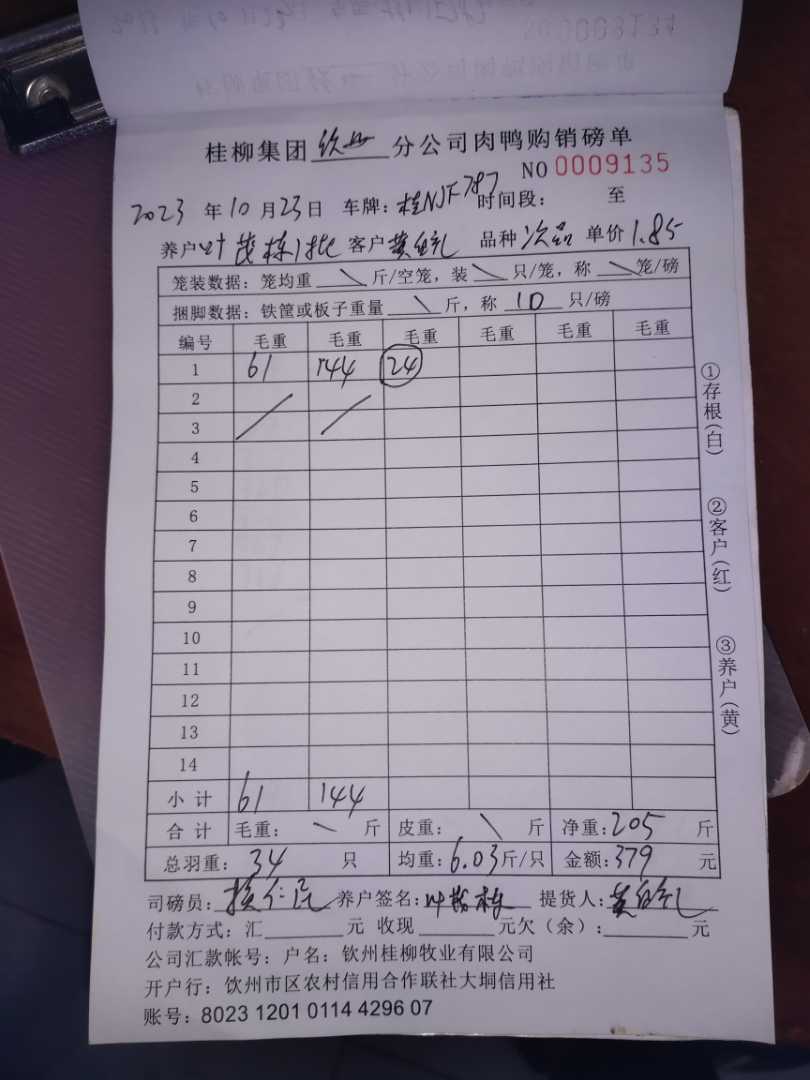 桂柳集团钦州分公司肉鸭购销磅单
NO 0009135
2023年10月23日 车牌:桂NJF787 时间段: 至
养户叶茂栋1批 客户黄 品种次品 单价1.85
笼装数据:笼均重\斤/空笼,装\只/笼,称\笼/磅
捆脚数据:铁筐或板子重量\斤,称10只/磅
编号 毛重 毛重 毛重 毛重 毛重 毛重
1 61 144 24
2
3
4
5
6
7
8
9
10
11
12
13
14
小计 61 144
合计 毛重:\斤 皮重:\斤 净重:205斤
总羽重:34只 均重:6.03斤/只 金额:379元
司磅员: 养户签名:叶茂栋 提货人:黄
付款方式:汇 元 收现 元欠(余): 元
公司汇款帐号:户名:钦州桂柳牧业有限公司
开户行:饮州市区农村信用合作联社大垌信用社
账号:8023 1201 0114 4296 07
①存根(白)
②客户(红)
③养户(黄)